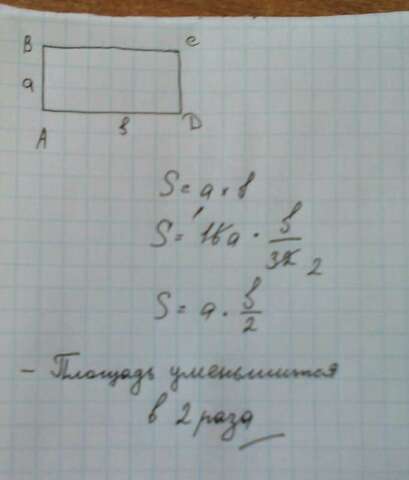 B C
a
A в D
S = a × в
S = 16a · в/32 2
S = a · в/2
- Площадь уменьшится
в 2 раза